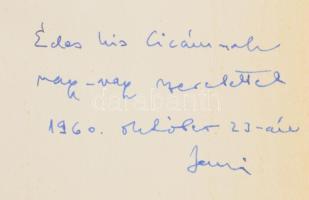 Édes kis Cicámnak
nagy-nagy szeretettel
1960. október 23-án
Jenő
darabanth